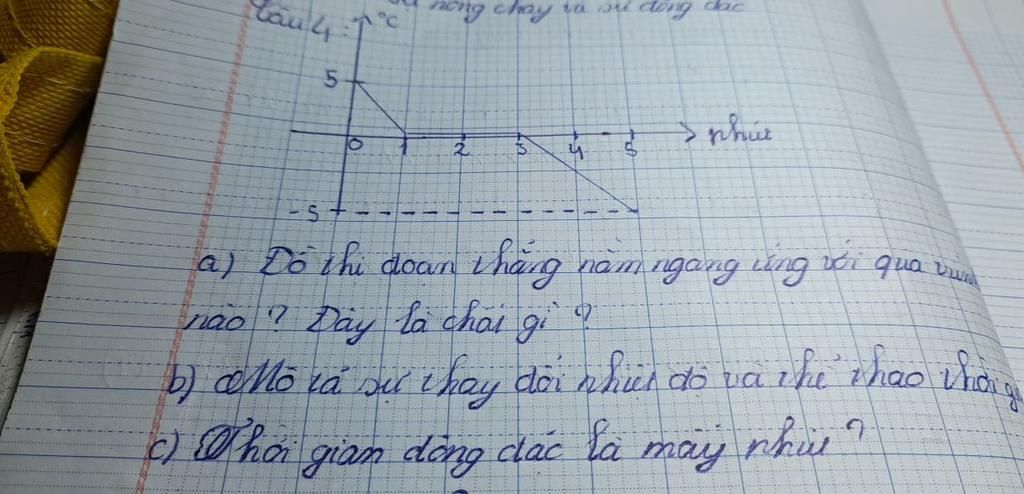 nóng chảy và sự đông đặc
Câu 4: °C
5
0 1 2 3 4 5 phút
-5
a) Đồ thị đoạn thẳng nằm ngang ứng với quá trình
nào? Đây là chất gì?
b) Mô tả sự thay đổi nhiệt độ và thể theo thời
c) Thời gian đông đặc là mấy phút?